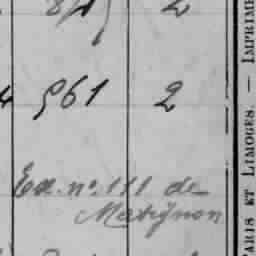 961 2
Ex. n° 111 de
Matignon
PARIS ET LIMOGES. — IMPRIME